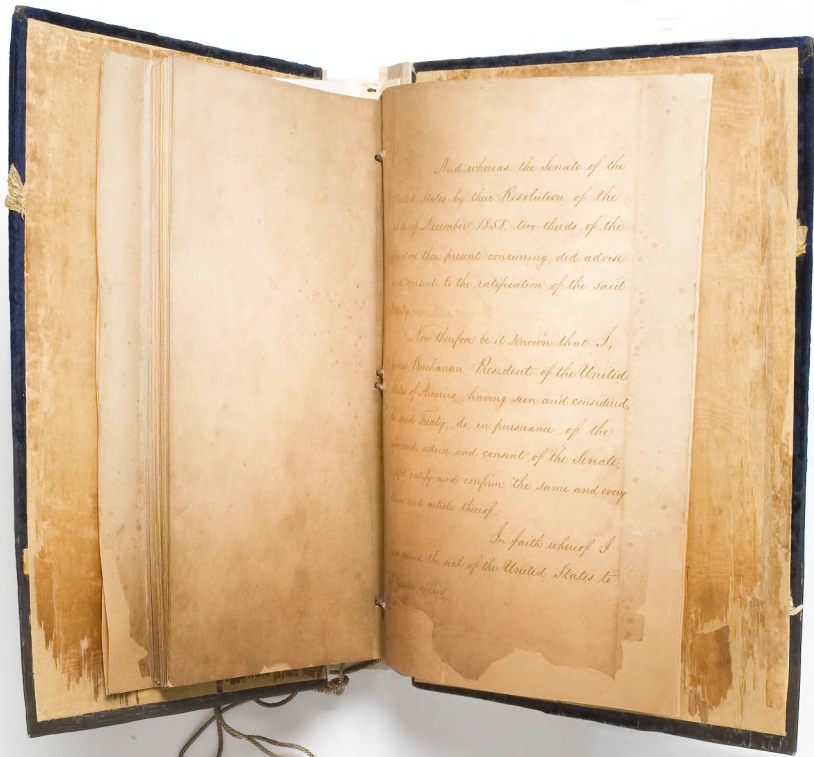 And whereas, the Senate of the
United States by their Resolution of the
of December 1858, two thirds of the
then present concurring, did advise
and consent to the ratification of the said
Treaty.
Now therefore be it Known that I,
James Buchanan, President of the United
States of America, having seen and considered
said Treaty, do, in pursuance of the
advice and consent of the Senate,
ratify and confirm the same and every
and article thereof.
In faith whereof I
caused the seal of the United States to
affixed.